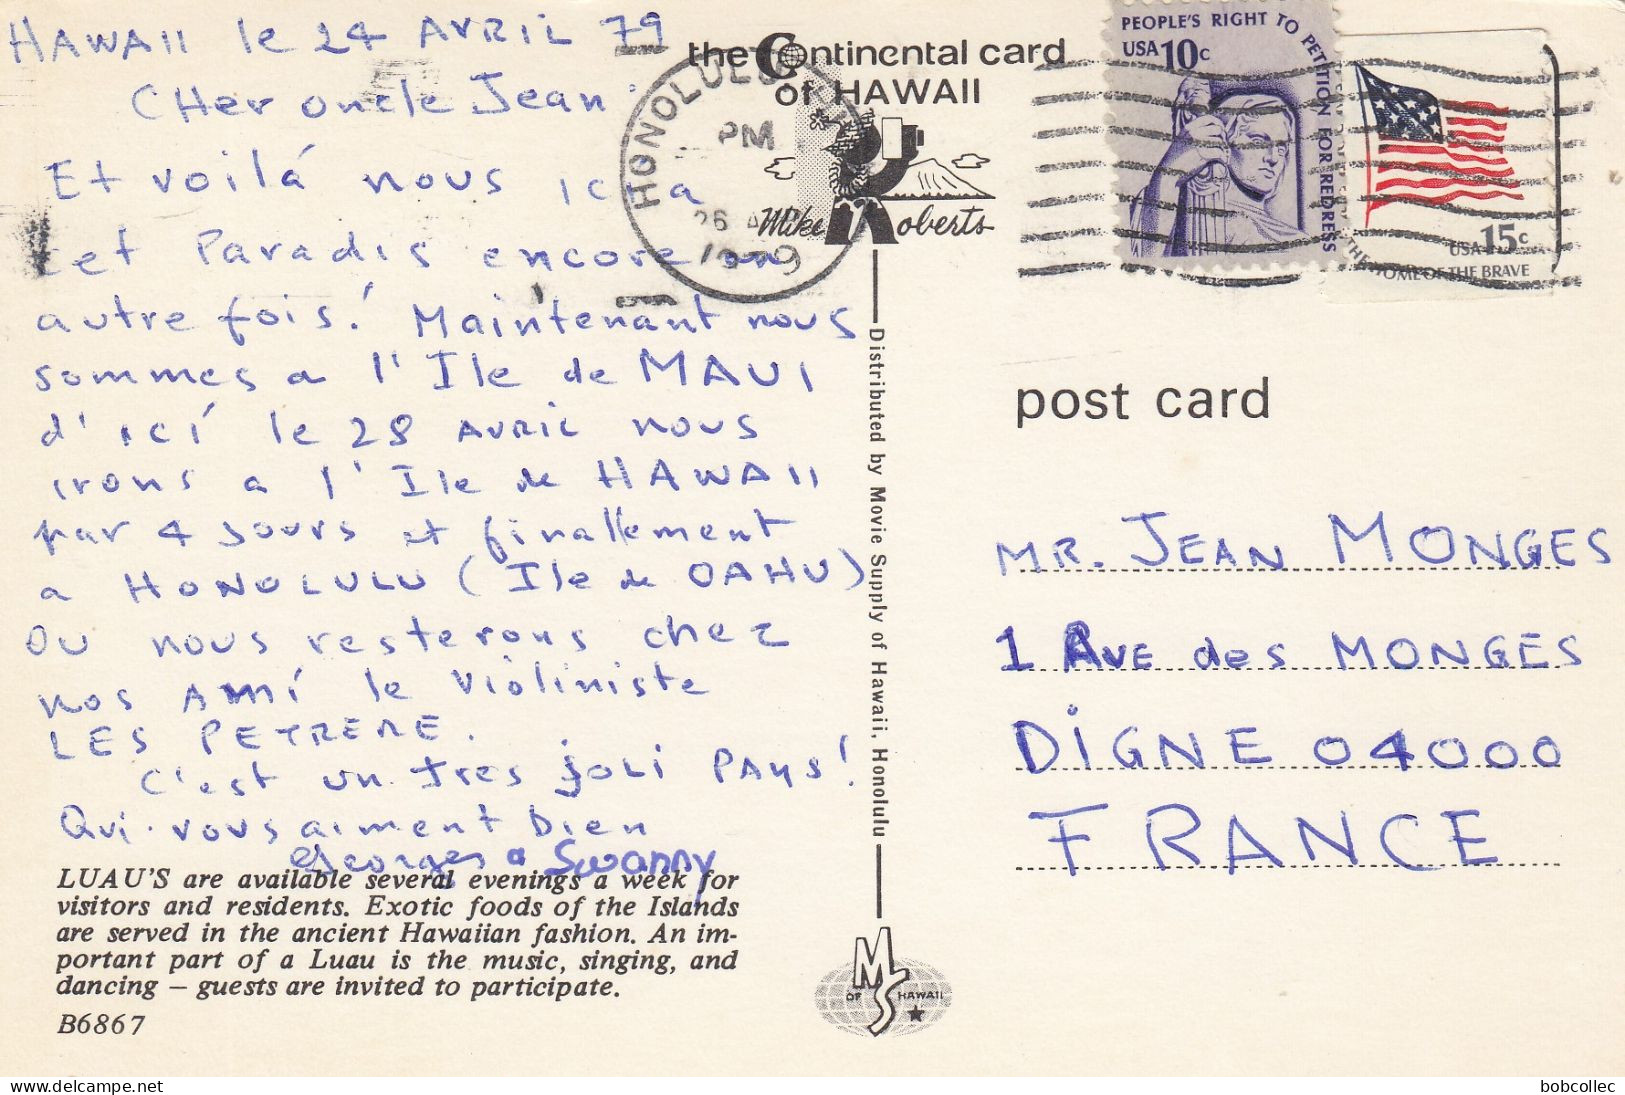 HAWAII le 24 AVRIL 79
CHer oncle Jean
Et voilá nous ici a
cet Paradis encore un
autre fois! Maintenant nous
sommes a l'Ile de MAUI
d'ici le 28 AVRIL nous
irons a l'Ile de HAWAII
par 4 jours et finallement
a HONOLULU (Ile de OAHU)
OU nous resterons chez
nos AMI le violiniste
LES PETRERE.
C'est un tres joli PAYS!
Qui vous aiment bien
Georges a Swanny
LUAU'S are available several evenings a week for
visitors and residents. Exotic foods of the Islands
are served in the ancient Hawaiian fashion. An im-
portant part of a Luau is the music, singing, and
dancing – guests are invited to participate.
B6867
the Continental card
of HAWAII
Mike Roberts
HONOLULU
PM
26
1979
PEOPLE'S RIGHT TO PETITION FOR REDRESS
USA 10c
USA 15c
THE HOME OF THE BRAVE
Distributed by Movie Supply of Hawaii, Honolulu
post card
MR. JEAN MONGES
1 AVE des MONGES
DIGNE 04000
FRANCE
MS
OF HAWAII
bobcollec